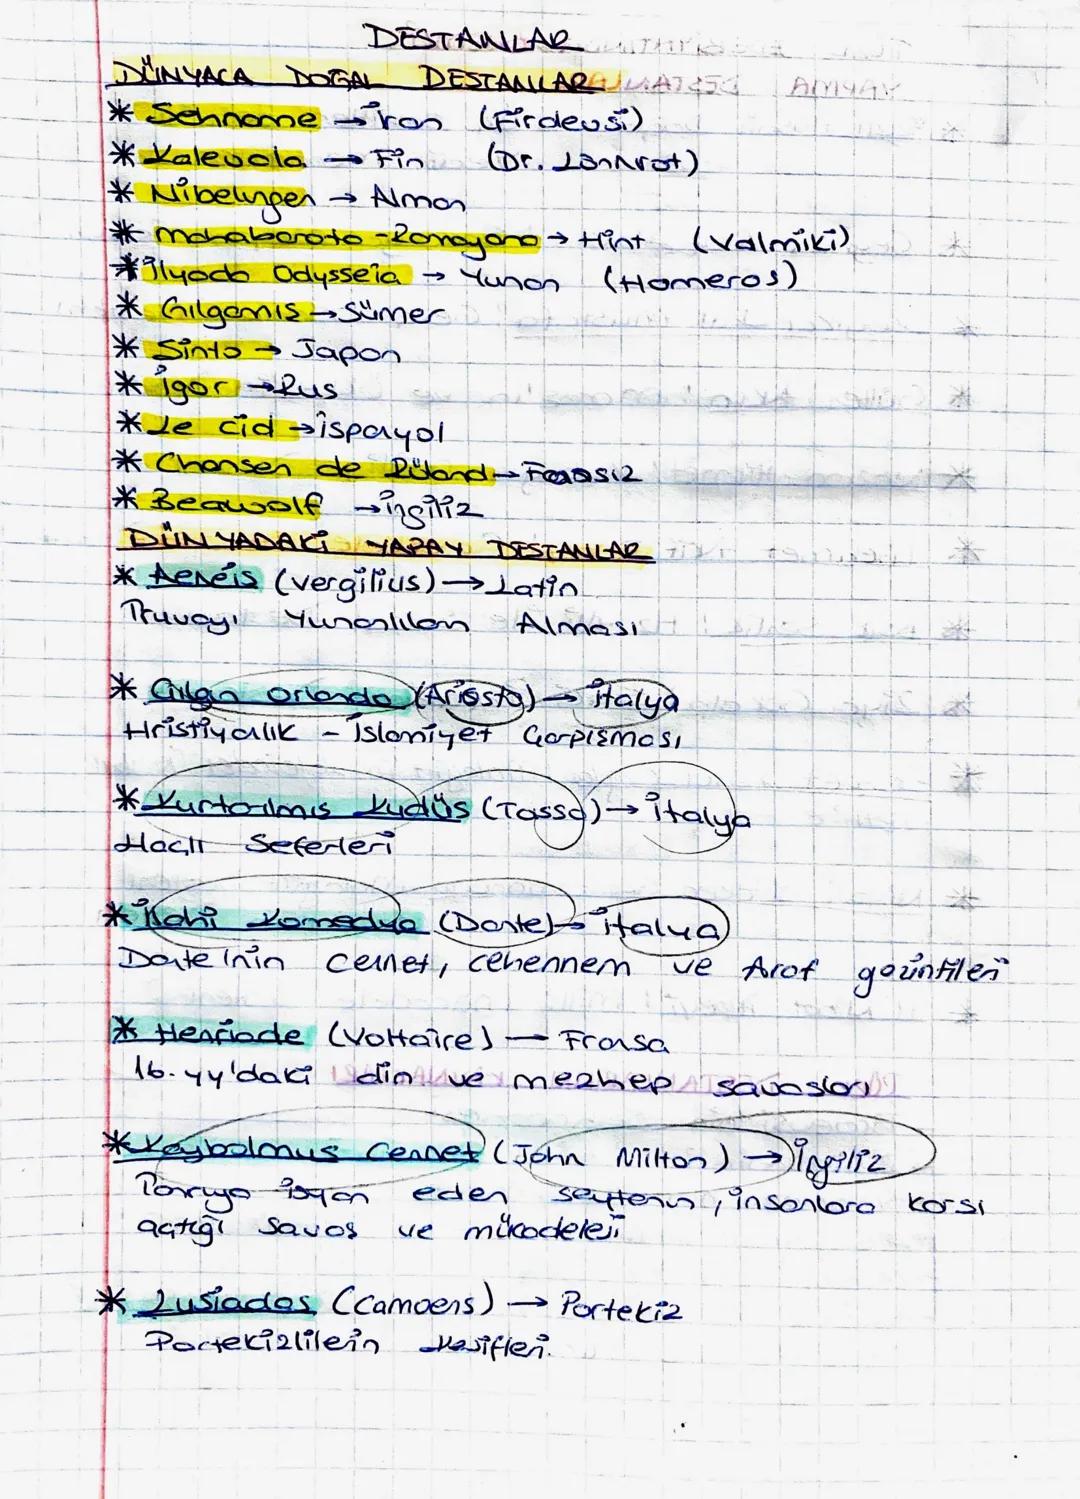 DESTANLAR
DÜNYACA DOĞAL DESTANLAR
* Şehname → İran (Firdevsi)
* Kalevala → Fin (Dr. Lönnrot)
* Nibelungen → Alman
* Mahabarata - Ramayana → Hint (Valmiki)
* İlyada Odysseia → Yunan (Homeros)
* Gılgamış → Sümer
* Şinto → Japon
* İgor → Rus
* Le cid → İspanyol
* Chansen de Röland → Fransız
* Beawolf → İngiliz
DÜNYADAKİ YAPAY DESTANLAR
* Aeneis (Vergilius) → Latin
Truvayı Yunanlıların Alması
* Çılgın Orlando (Ariosto) → İtalya
Hristiyanlık - İslamiyet Çarpışması
* Kurtarılmış Kudüs (Tasso) → İtalya
Haçlı Seferleri
* İlahi Komedya (Dante) → İtalya
Dante'nin cennet, cehennem ve Araf gezintileri
* Henriade (Voltaire) → Fransa
16. yy'daki din ve mezhep savaşları
* Kaybolmuş Cennet (John Milton) → İngiliz
Tanrıya isyan eden şeytanın, insanlara karşı
açtığı savaş ve mücadelesi
* Lusiadas (Camoens) → Portekiz
Portekizlilerin Keşifleri.